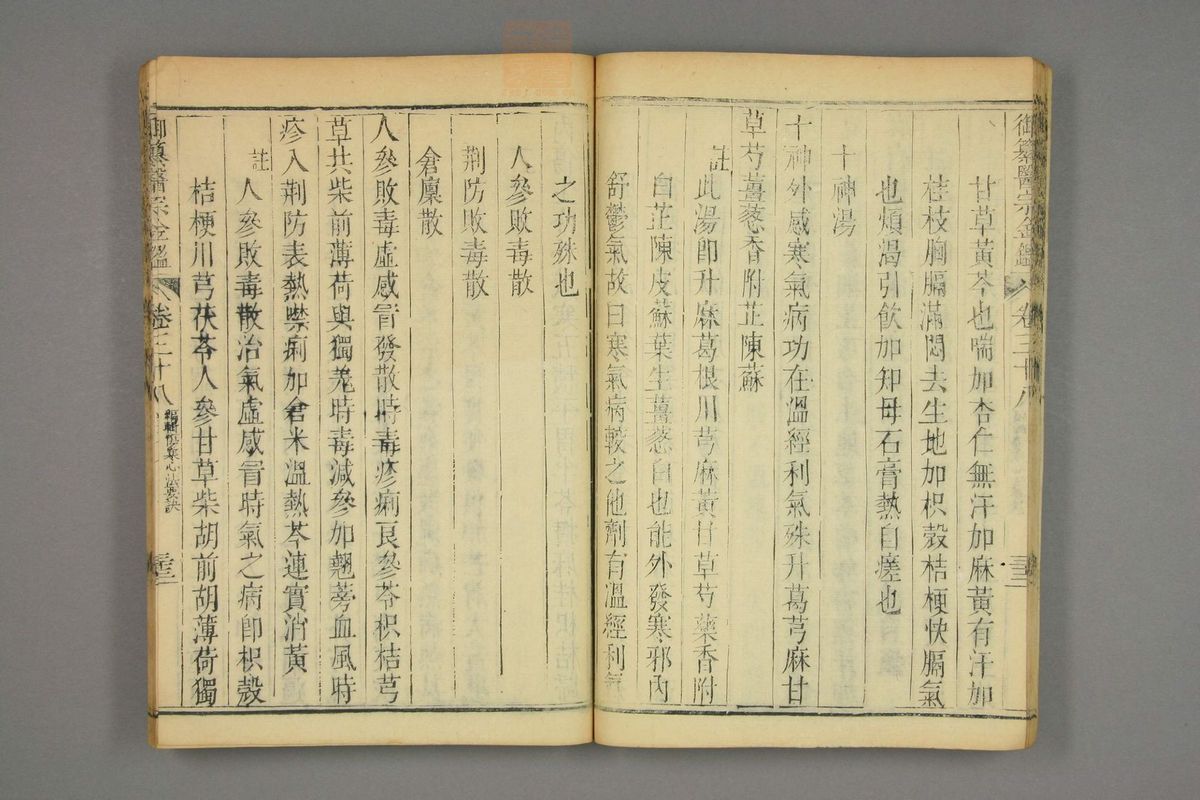 御纂醫宗金鑑 卷三十八 三三
甘草黃芩也喘加杏仁無汗加麻黃有汗加
桂枝胸膈滿悶去生地加枳殼桔梗快膈氣
也煩渴引飲加知母石膏熱自瘥也
十神湯
十神外感寒氣病功在溫經利氣殊升葛芎麻甘
草芍薑蔥香附芷陳蘇
註
此湯卽升麻葛根川芎麻黃甘草芍藥香附
白芷陳皮蘇葉生薑蔥白也能外發寒邪內
舒鬱氣故曰寒氣病較之他劑有溫經利氣
之功殊也
人參敗毒散
荆防敗毒散
倉廩散
人參敗毒虛感冒發散時毒疹痢良參苓枳桔芎
草共柴前薄荷與獨羗時毒減參加翹蒡血風時
疹入荆防表熱噤痢加倉米溫熱芩連實消黃
註人參敗毒散治氣虛感冒時氣之病卽枳殼
桔梗川芎茯苓人參甘草柴胡前胡薄荷獨
御纂醫宗金鑑 卷三十八 編輯傷寒心法要訣 三三